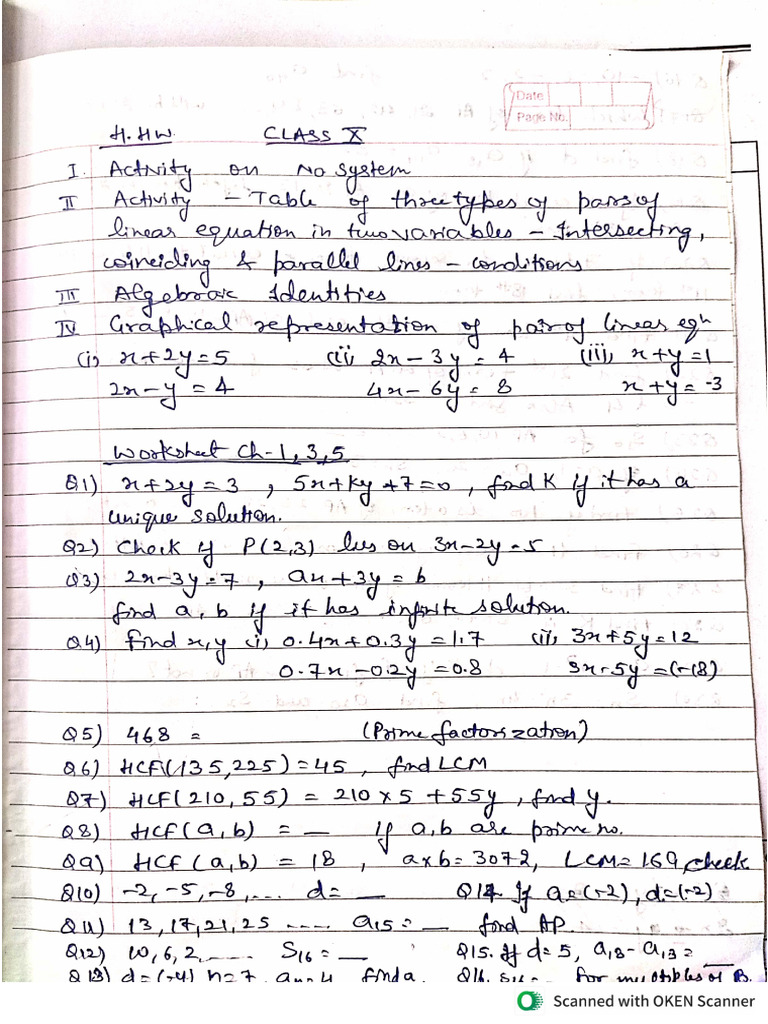 Date
Page No.
H.HW. CLASS X
I. Activity on No system
II Activity - Table of three types of pairs of
linear equation in two variables - Intersecting,
coinciding & parallel lines - conditions
III Algebraic Identities
IV Graphical representation of pair of linear eqn
(i) x+2y=5 (ii) 2x-3y=4 (iii) x+y=1
2x-y=4 4x-6y=8 x+y=-3
Worksheet Ch-1,3,5
Q1) x+2y=3, 5x+ky+7=0, find K if it has a
unique solution.
Q2) Check if P(2,3) lies on 3x-2y=5
Q3) 2x-3y=7, ax+3y=b
find a, b if it has infinite solution.
Q4) Find x,y (i) 0.4x+0.3y=1.7 (ii) 3x+5y=12
0.7x-0.2y=0.8 3x-5y=(-18)
Q5) 468 = (Prime factorization)
Q6) HCF(135,225)=45, find LCM
Q7) HCF(210,55) = 210×5+55y, find y.
Q8) HCF(a,b) = _ if a,b are prime no.
Q9) HCF(a,b) = 18, a×b=3072, LCM=169, check
Q10) -2,-5,-8,... d=_ Q14. If a=(-2), d=(-2)
Q11) 13,17,21,25 .... a15=_ find AP.
Q12) 10,6,2,.... S16=_ Q15. If d=5, a18-a13=_
Q13) d=(-4) n=7 an=4 find a. Q16. S16= for multiples of 8.
Scanned with OKEN Scanner